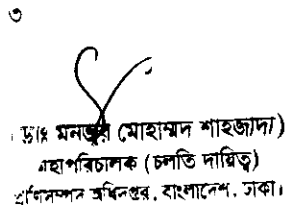 ৩
ডাঃ মনজুর মোহাম্মদ শাহজাদা)
মহাপরিচালক (চলতি দায়িত্ব)
প্রাণিসম্পদ অধিদপ্তর, বাংলাদেশ, ঢাকা।